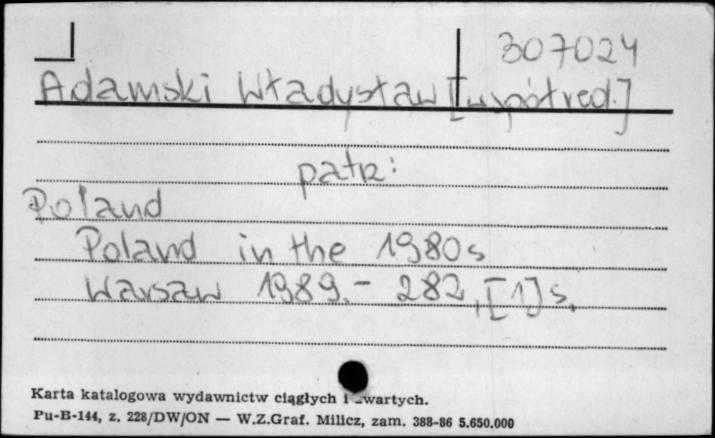 307024
Adamski Władysław [współred.]
patrz:
Poland
Poland in the 1980s
Warsaw 1989. - 282, [1] s.
Karta katalogowa wydawnictw ciągłych i zwartych.
Pu-B-144, z. 228/DW/ON — W.Z.Graf. Milicz, zam. 388-86 5.650.000